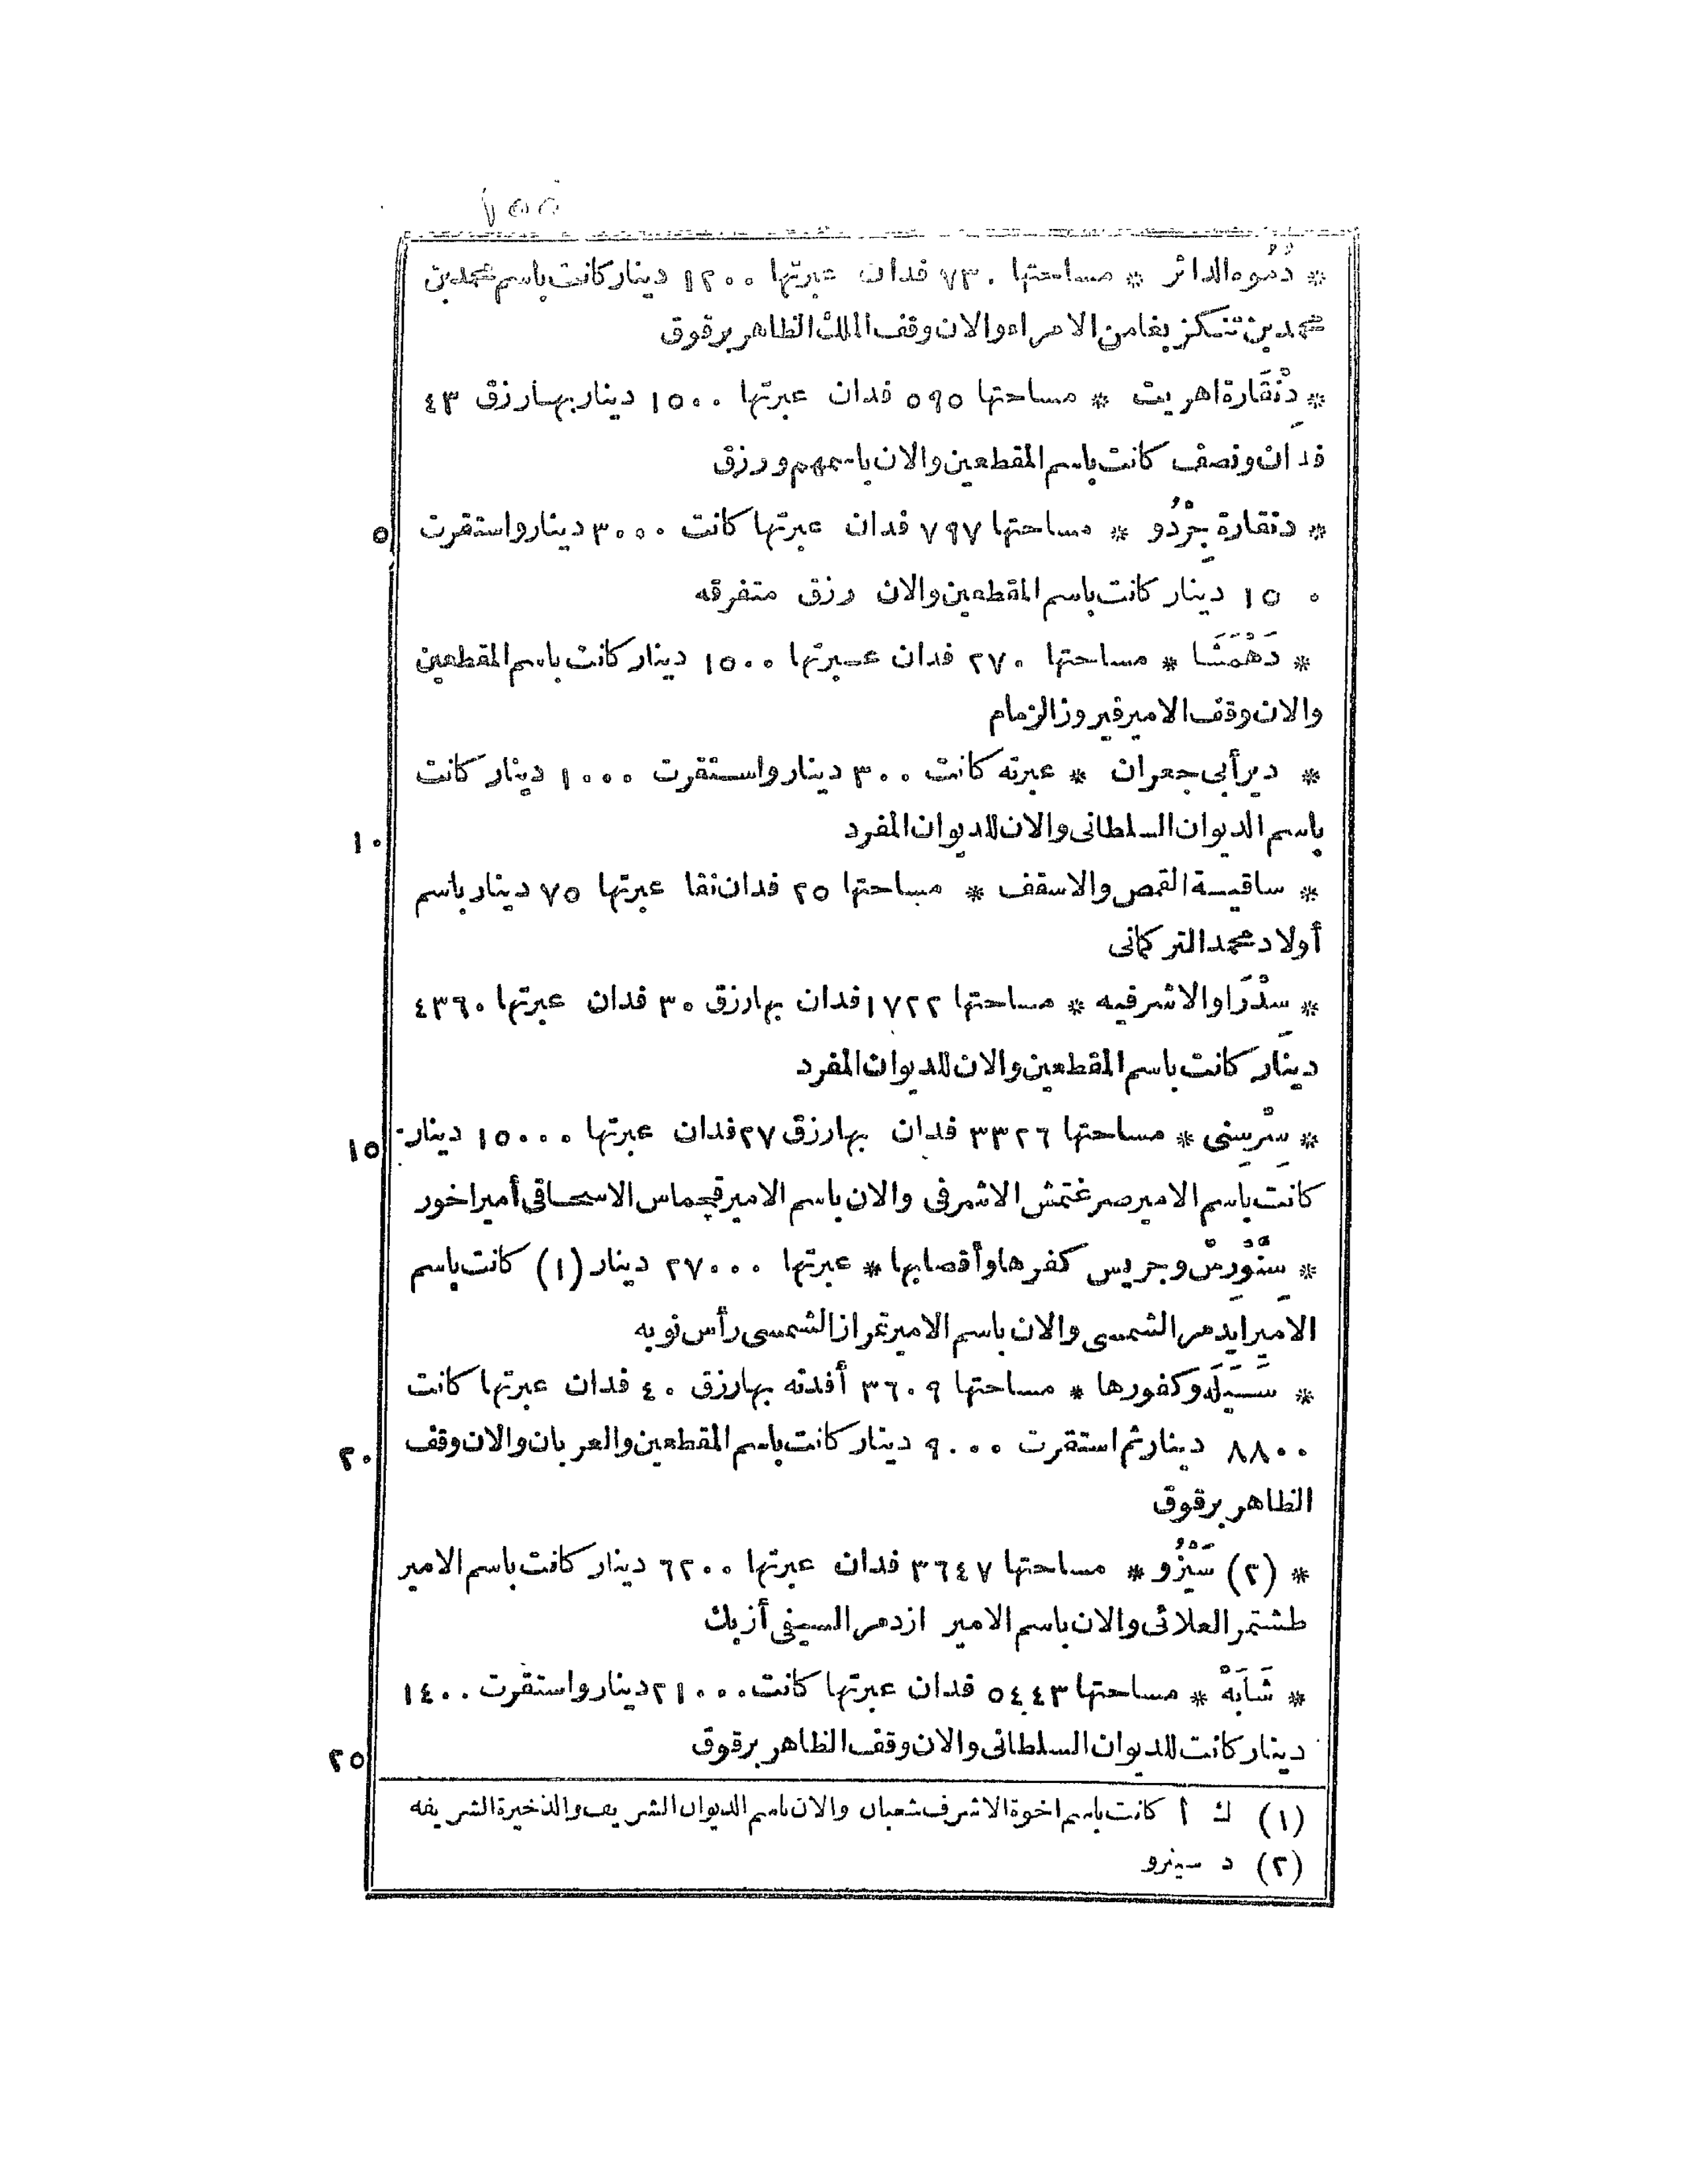 ١٥٥
* دُمُوه الدائر * مساحتها ٧٣٠ فدان عبرتها ١٢٠٠ دينار كانت باسم محمد بن
محمد بن تنكز بغا من الامراء والان وقف الملك الظاهر برقوق
* دِنْقَارة اهريت * مساحتها ٥٩٥ فدان عبرتها ١٥٠٠ دينار بها رزق ٤٣
فدان ونصف كانت باسم المقطعين والان باسمهم ورزق
* دنقارة جِرْدُو * مساحتها ٧٩٧ فدان عبرتها كانت ٣٠٠٠ دينار واستقرت ٥
١٥٠ دينار كانت باسم المقطعين والان رزق متفرقه
* دَهْمَشَا * مساحتها ٢٧٠ فدان عبرتها ١٥٠٠ دينار كانت باسم المقطعين
والان وقف الامير فيروز الزمام
* دير أبى جعران * عبرته كانت ٣٠٠ دينار واستقرت ١٠٠٠ دينار كانت
باسم الديوان السلطانى والان للديوان المفرد ١٠
* ساقيسة القمص والاسقف * مساحتها ٢٥ فدان نقا عبرتها ٧٥ دينار باسم
أولاد محمد التركمانى
* سِدْرَا والاشرفيه * مساحتها ١٧٢٢ فدان بها رزق ٣٠ فدان عبرتها ٤٣٦٠
دينار كانت باسم المقطعين والان للديوان المفرد
* سِرْسِنى * مساحتها ٣٣٢٦ فدان بها رزق ٢٧ فدان عبرتها ١٥٠٠٠ دينار ١٥
كانت باسم الامير صرغتمش الاشرفى والان باسم الامير قجماس الاسحاقى أميراخور
* سِنَّوْرِسْ وجريس كفرها وأقصابها * عبرتها ٢٧٠٠٠ دينار (١) كانت باسم
الامير ايدمر الشمسى والان باسم الامير تمراز الشمسى رأس نوبه
* سَيَلَه وكفورها * مساحتها ٣٦٠٩ أفدنه بها رزق ٤٠ فدان عبرتها كانت
٨٨٠٠ دينار ثم استقرت ٩٠٠٠ دينار كانت باسم المقطعين والعربان والان وقف ٢٠
الظاهر برقوق
* (٢) سَيْزُو * مساحتها ٣٦٤٧ فدان عبرتها ٦٢٠٠ دينار كانت باسم الامير
طشتمر العلائى والان باسم الامير ازدمر السيفى أزبك
* شَابَهْ * مساحتها ٥٤٤٣ فدان عبرتها كانت ٢١٠٠٠ دينار واستقرت ١٤٠٠
دينار كانت للديوان السلطانى والان وقف الظاهر برقوق ٢٥
(١) ك أ كانت باسم اخوة الاشرف شعبان والان باسم الديوان الشريف والذخيرة الشريفه
(٢) د سينرو